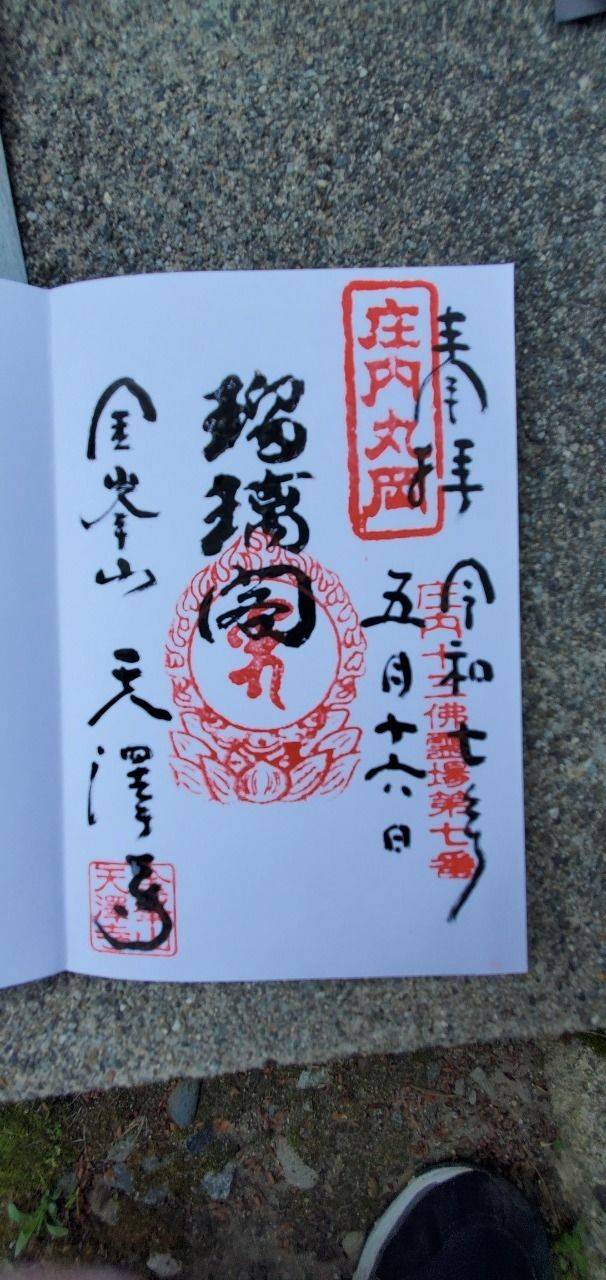 奉拝
庄内丸岡
令和七年
庄内十三佛霊場第七番
五月十六日
瑠璃閣
金峯山 天澤寺
金峯山
天澤寺